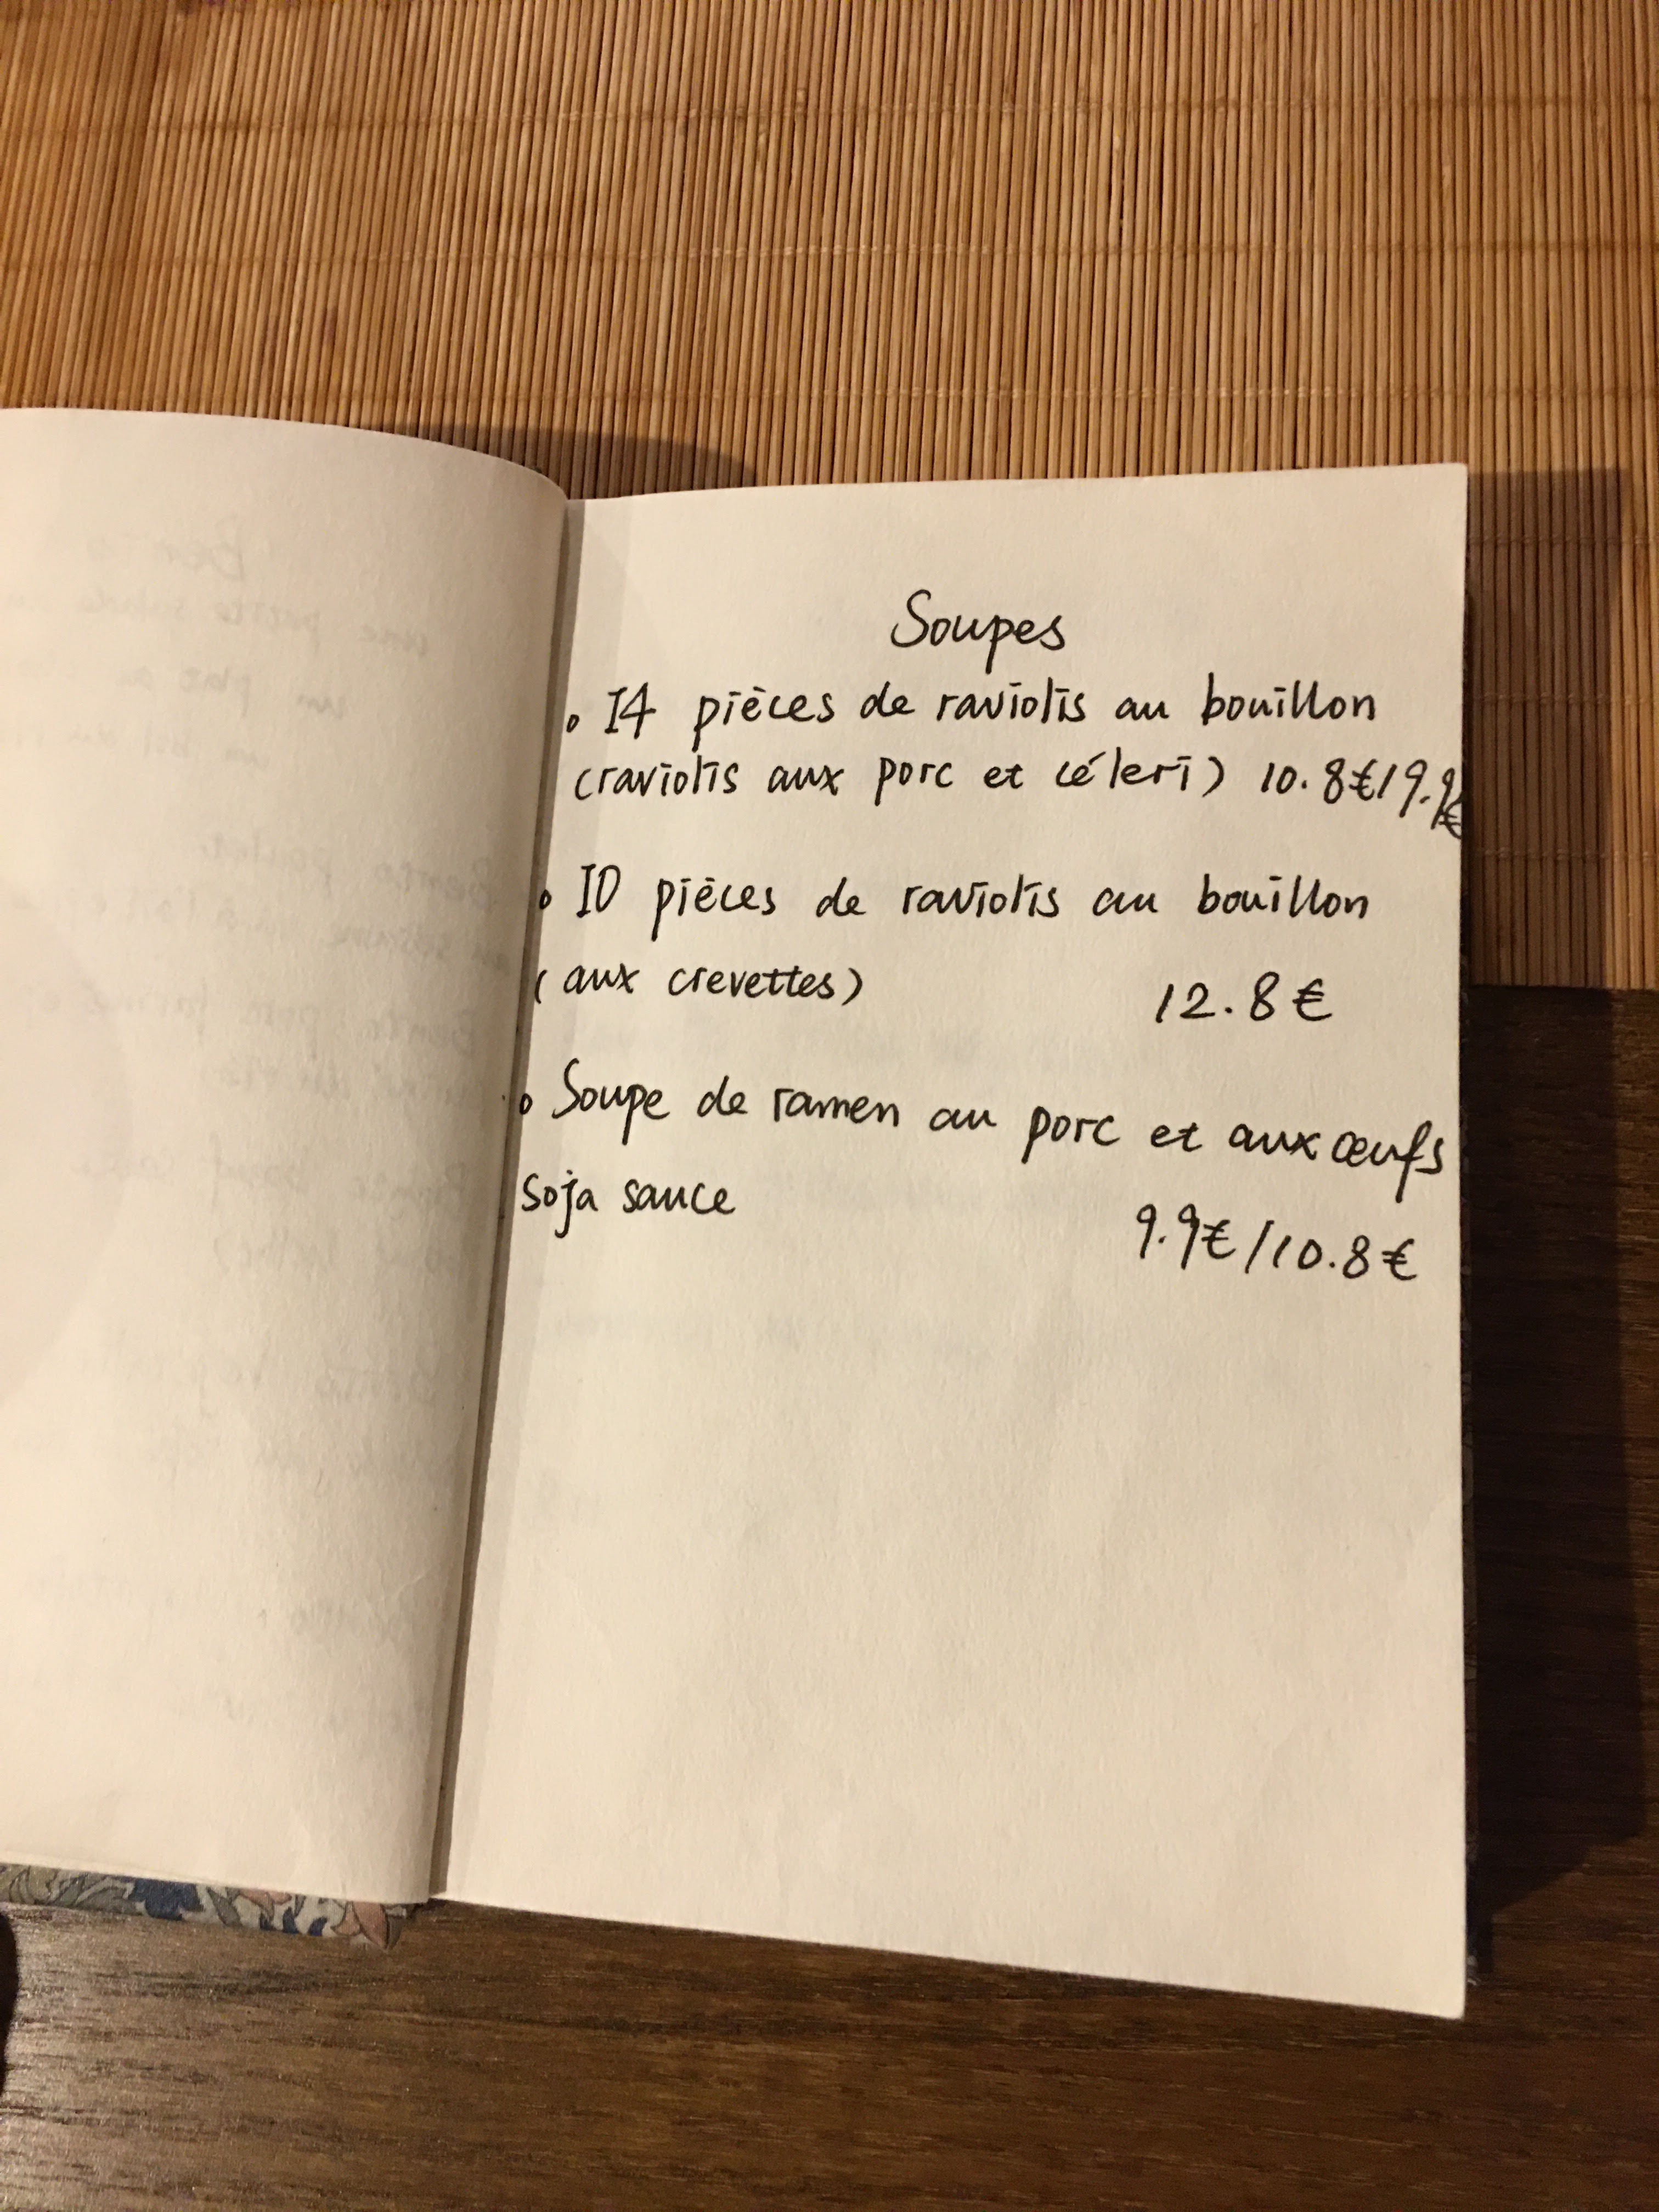 Soupes
◦ 14 pièces de raviolis au bouillon
(raviolis aux porc et céleri) 10.8€/9.9€
◦ 10 pièces de raviolis au bouillon
(aux crevettes) 12.8€
◦ Soupe de ramen au porc et aux œufs
soja sauce 9.9€/10.8€